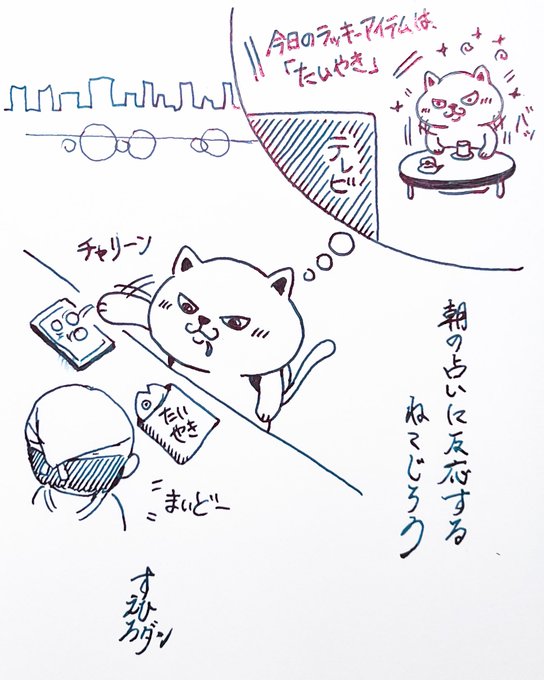 今日のラッキーアイテムは、
「たいやき」
テレビ
バッ
チャリーン
たい
やき
まいどー
朝の占いに反応する
ねこじろう
すえひろダン